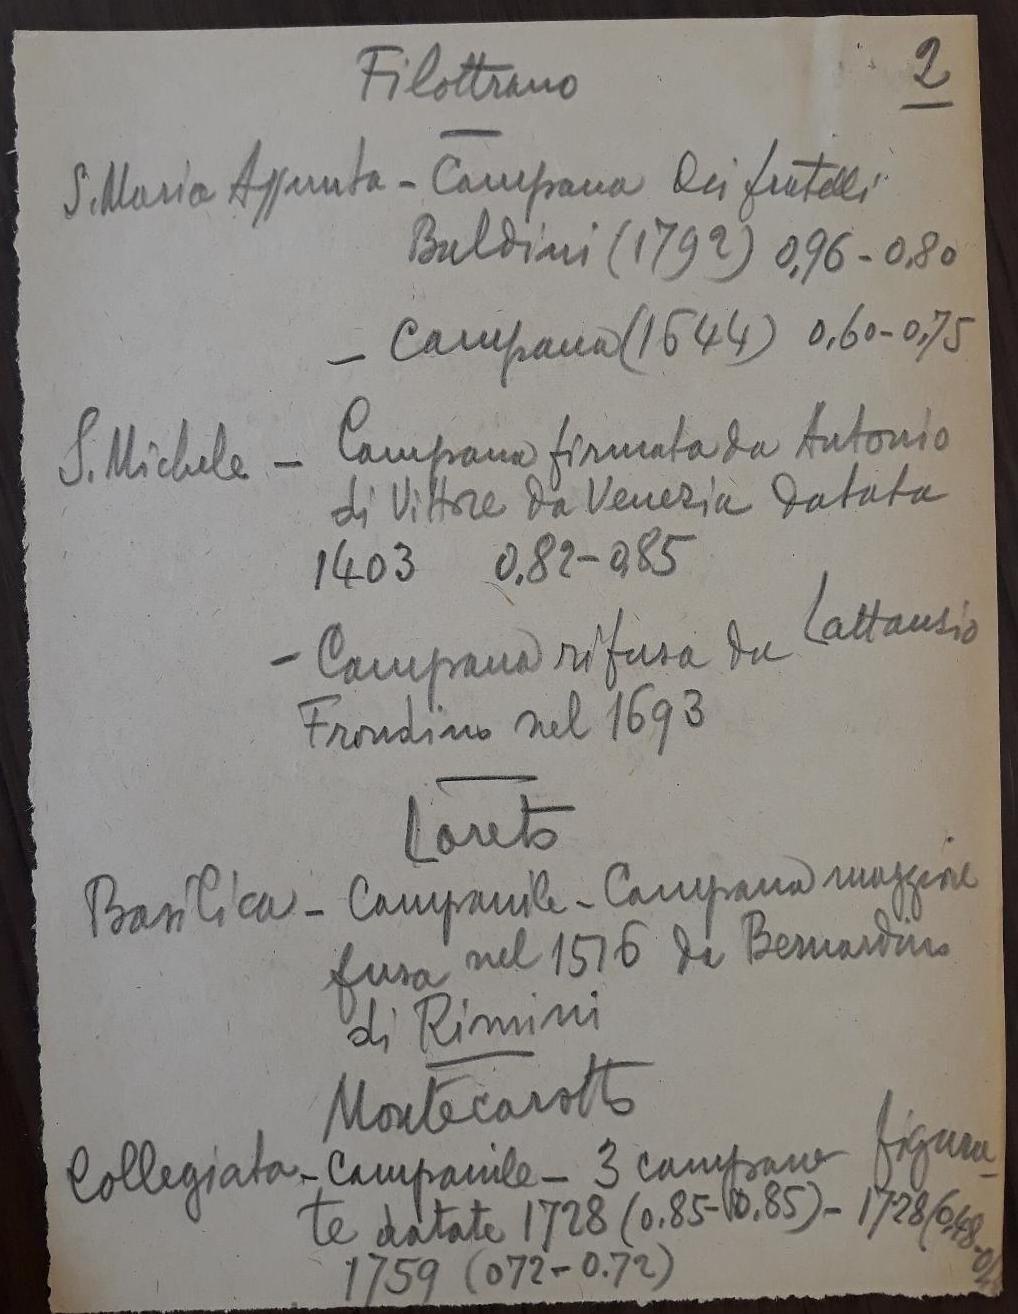 2
Filottrano
S. Maria Assunta - Campana dei fratelli
Baldini (1792) 0,96 - 0,80
- Campana (1644) 0,60 - 0,75
S. Michele - Campana firmata da Antonio
di Vittore da Venezia datata
1403 0,82 - 0,85
- Campana rifusa da Lattanzio
Frondino nel 1693
Loreto
Basilica - Campanile - Campana maggiore
fusa nel 1516 da Bernardino
di Rimini
Montecarotto
Collegiata - Campanile - 3 campane figura-
te datate 1728 (0.85 - 0.85) - 1728 (0,48 -
1759 (072 - 0.72)